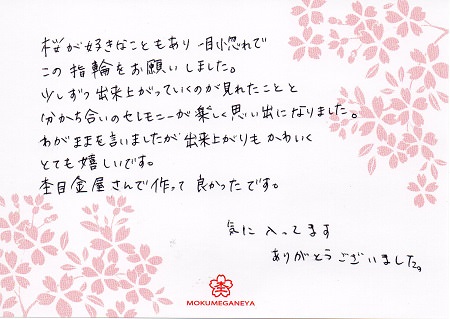 桜が好きなこともあり 一目惚れで
この指輪をお願いしました。
少しずつ出来上がっていくのが見れたことと
分かち合いのセレモニーが楽しく思い出になりました。
わがままを言いましたが出来上がりもかわいく
とても嬉しいです。
杢目金屋さんで作って良かったです。
気に入ってます
ありがとうございました。
杢
MOKUMEGANEYA